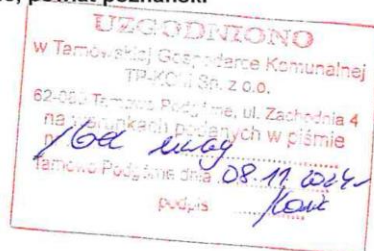 powiat poznański
UZGODNIONO
w Tarnowskiej Gospodarce Komunalnej
TP-KOM Sp. z o.o.
62-080 Tarnowo Podgórne, ul. Zachodnia 4
na warunkach podanych w piśmie
Bez uwag
Tarnowo Podgórne dnia 08.11.2024
podpis